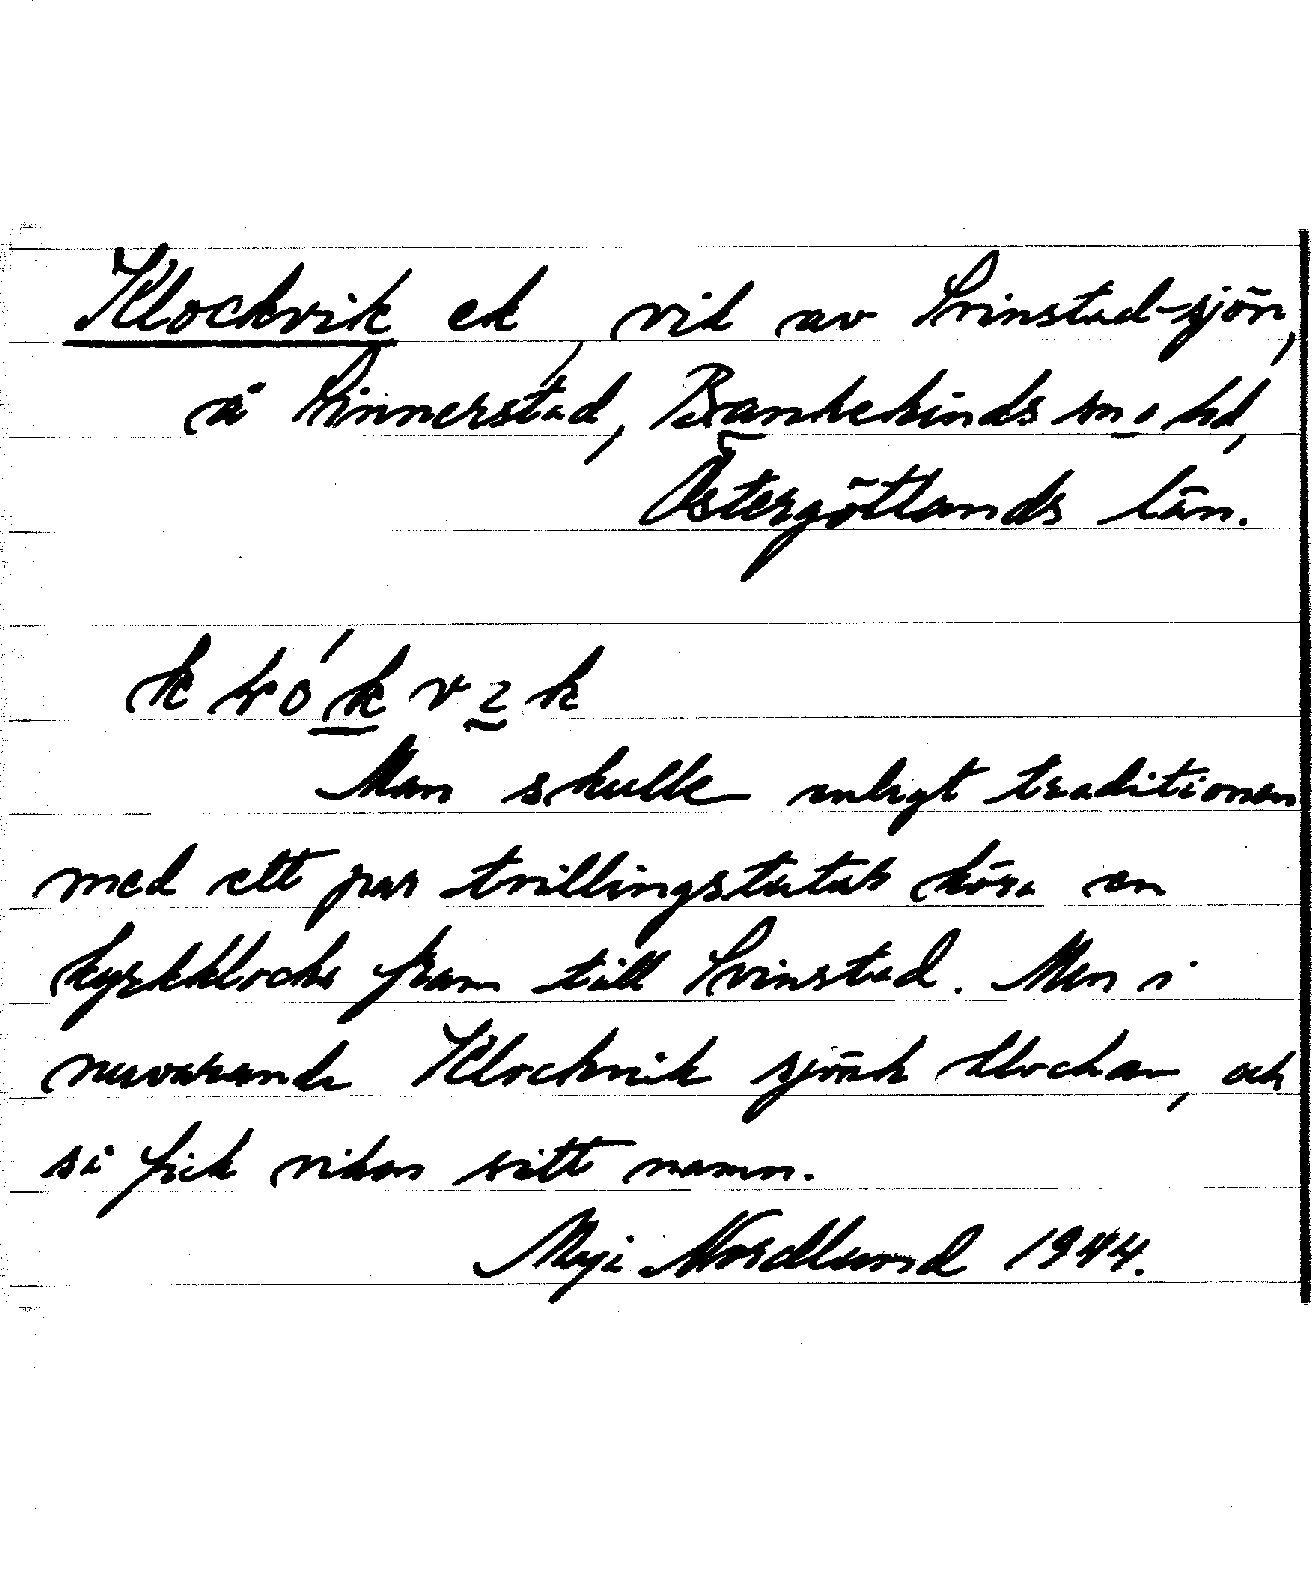 Klockvik ek, vik av Svinstad-sjön,
å Sinnerstad, Bankekinds sn o hd,
Östergötlands län.
Man skulle enligt traditionen
med ett par tvillingstutar köra en
kyrkklocka fram till Svinstad. Men i
nuvarande Klockvik sjönk klockan, och
så fick viken sitt namn.
Maji Nordlund 1944.